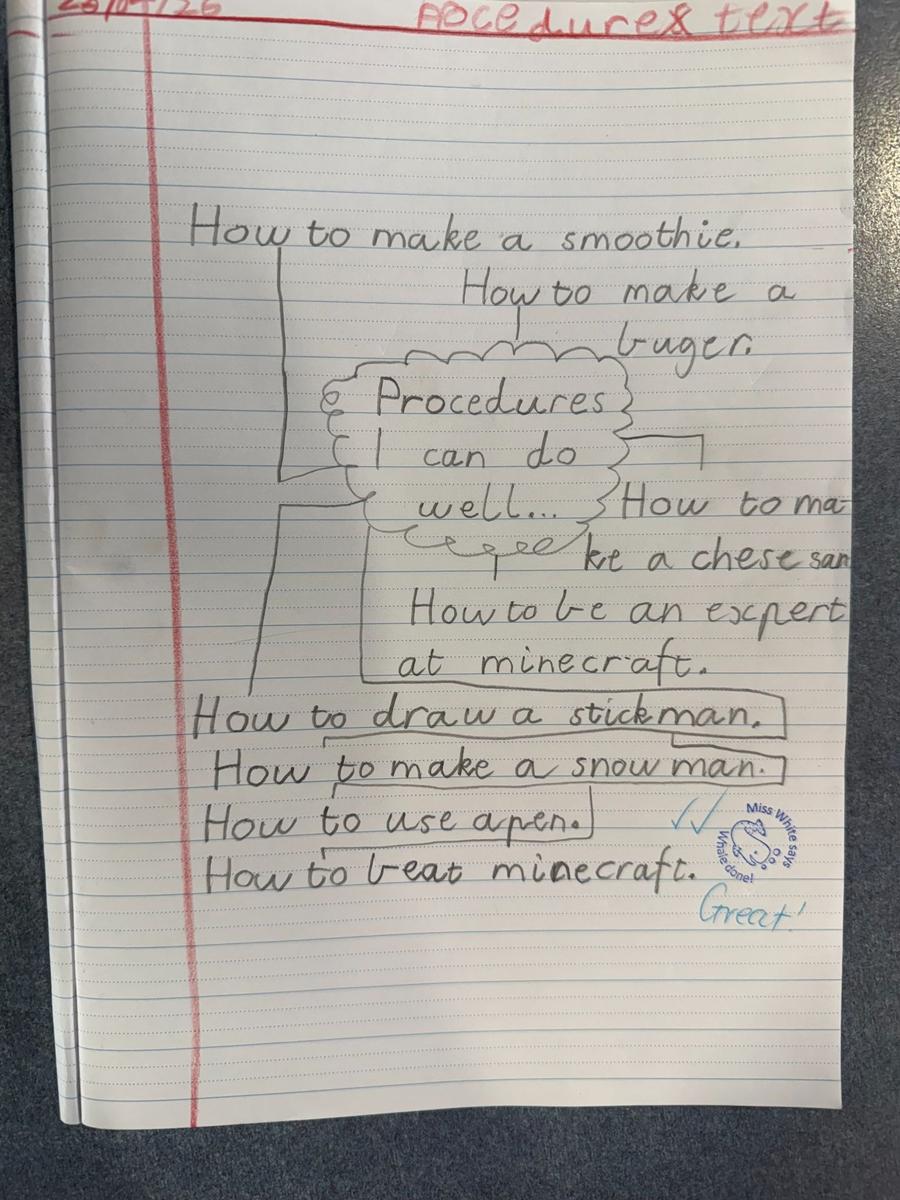 Procedures text
How to make a smoothie.
How to make a
buger.
Procedures
I can do
well...
How to ma-
ke a chese san
How to be an expert
at minecraft.
How to draw a stickman.
How to make a snowman.
How to use a pen.
How to beat minecraft.
Miss White says
Whale done!
Great!